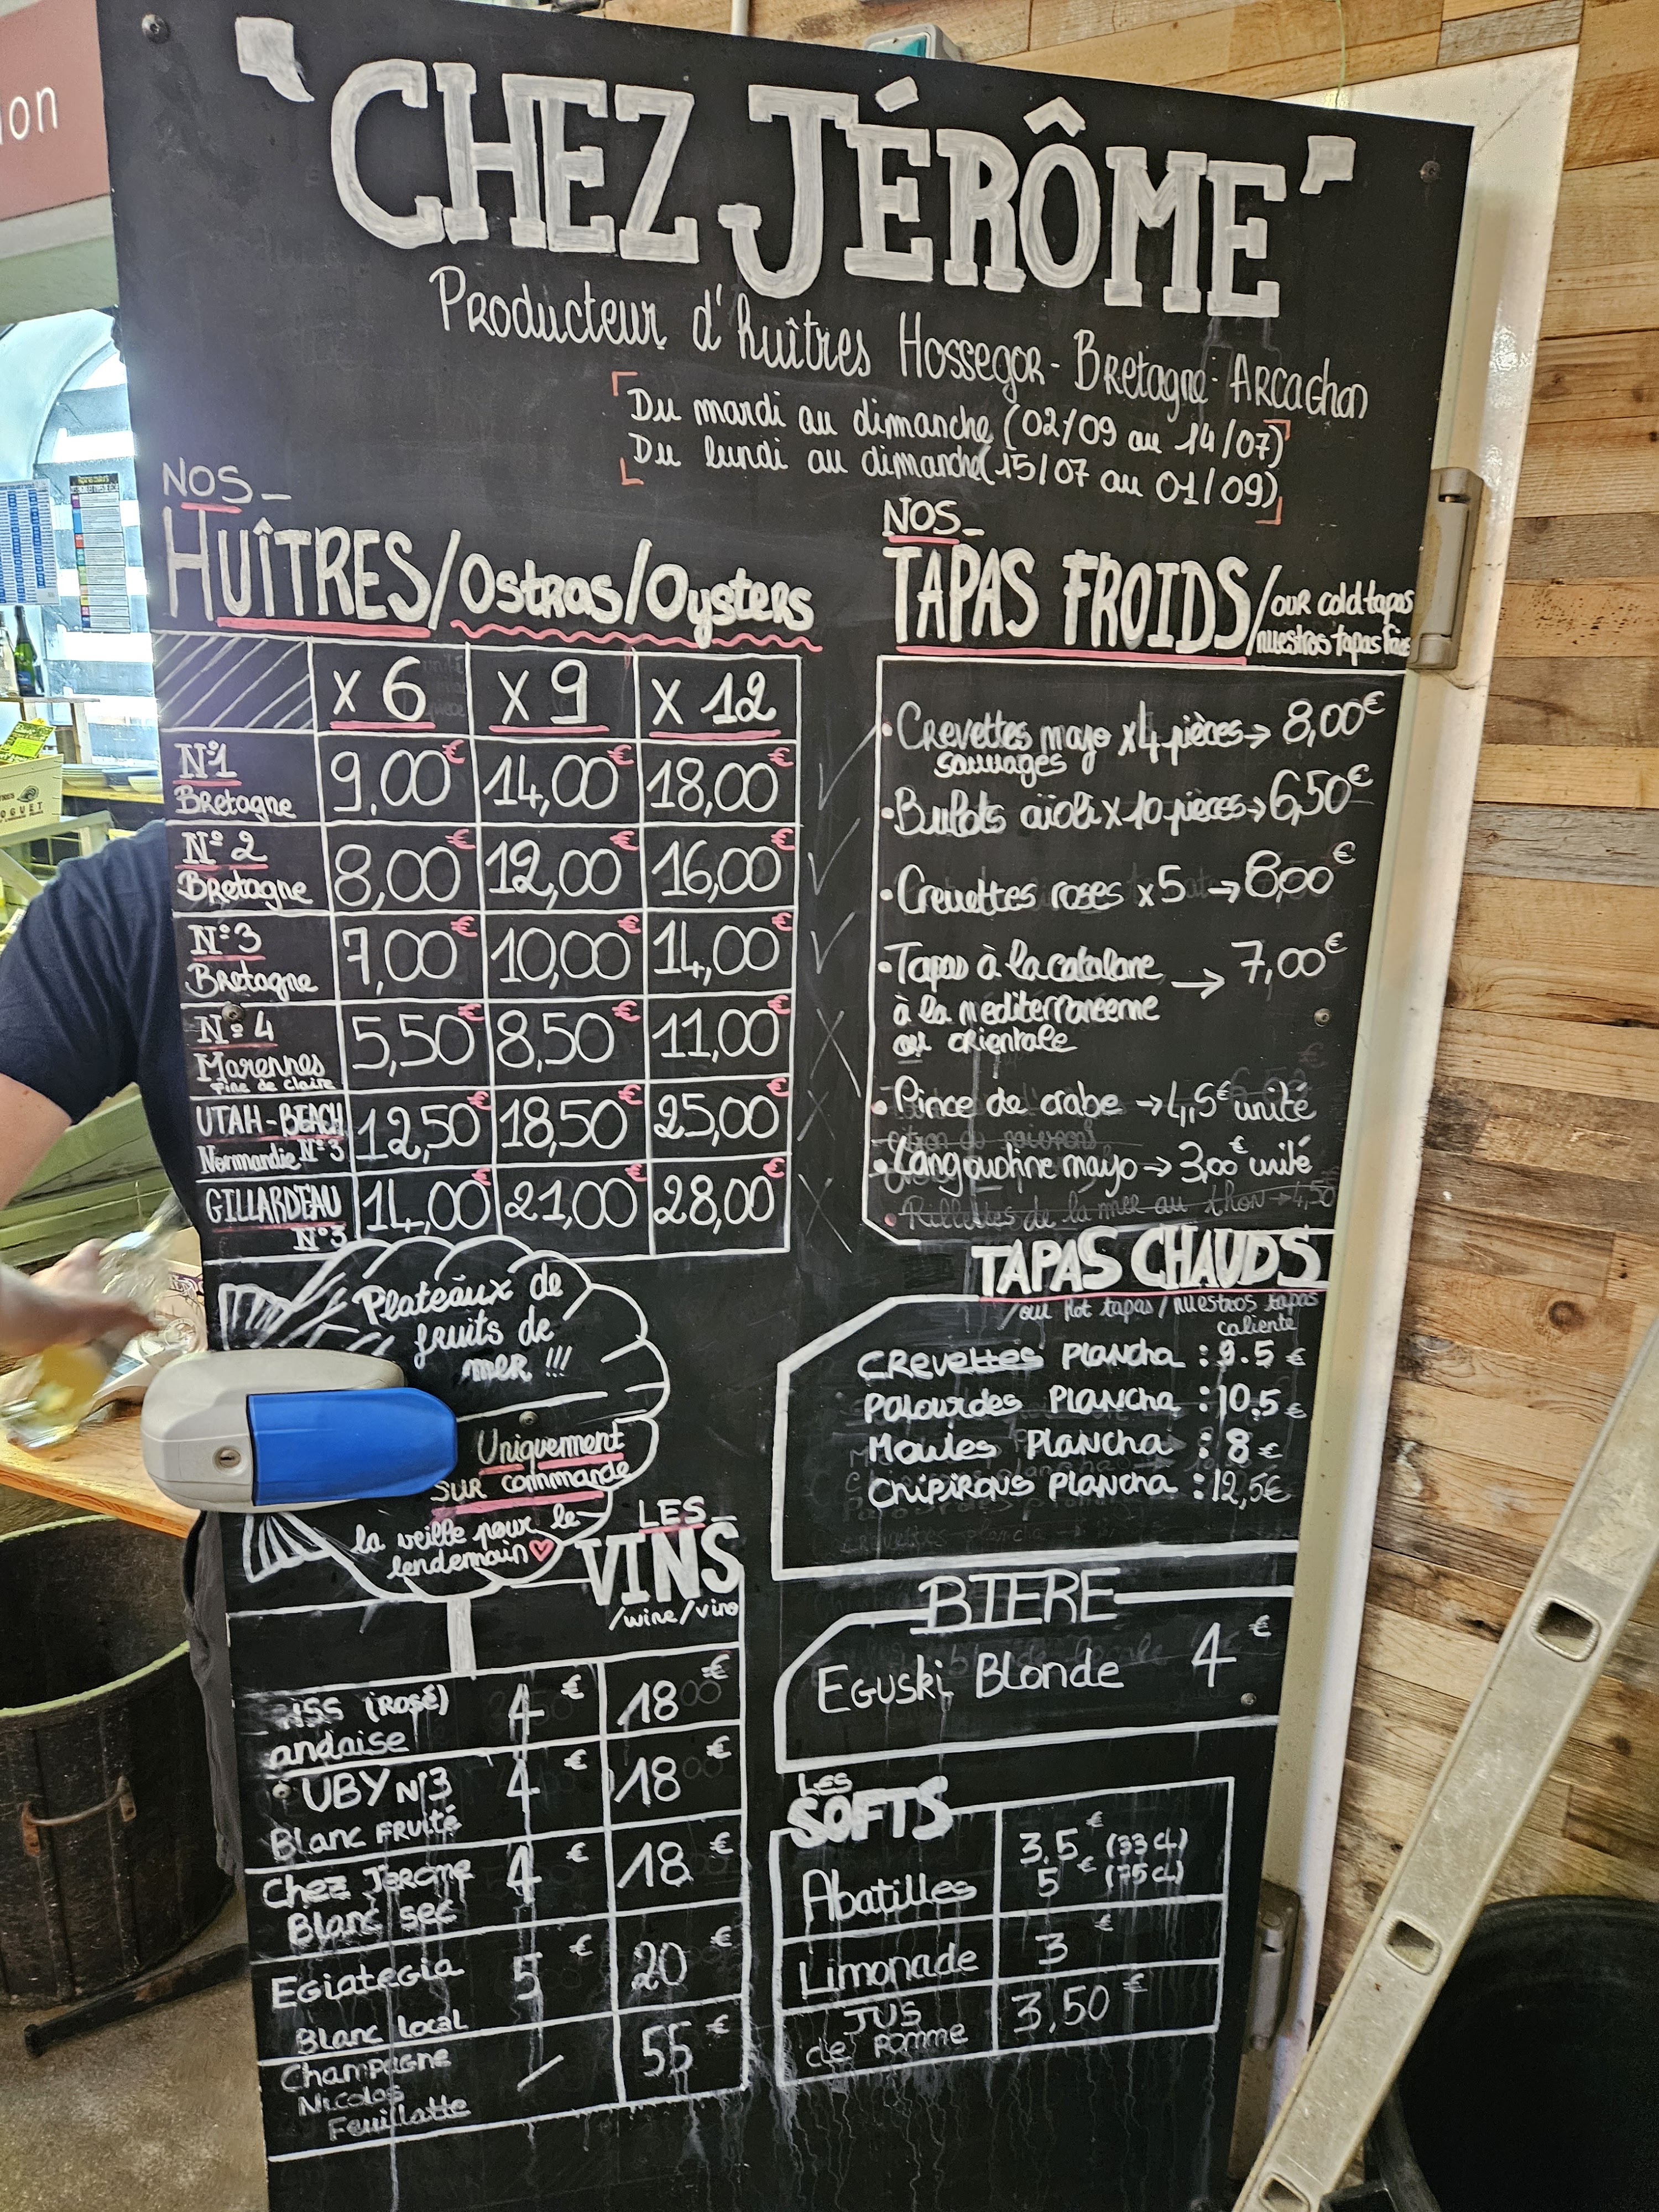 ion
"CHEZ JÉRÔME"
Producteur d'huîtres Hossegor - Bretagne - Arcachon
Du mardi au dimanche (02/09 au 14/07)
Du lundi au dimanche (15/07 au 01/09)
NOS_
HUÎTRES/Ostras/Oysters
x 6 x 9 x 12
N°1 Bretagne 9,00€ 14,00€ 18,00€
N°2 Bretagne 8,00€ 12,00€ 16,00€
N°3 Bretagne 7,00€ 10,00€ 14,00€
N°4 Marennes fine de claire 5,50€ 8,50€ 11,00€
UTAH-BEACH Normandie N°3 12,50€ 18,50€ 25,00€
GILLARDEAU N°3 14,00€ 21,00€ 28,00€
NOS_
TAPAS FROIDS/our cold tapas
/nuestros tapas
• Crevettes mayo x4 pièces → 8,00€
sauvages
• Bulots aïoli x 10 pièces → 6,50€
• Crevettes roses x5 → 8,00€
• Tapas à la catalane → 7,00€
à la mediterraneenne
ou orientale
• Pince de crabe → 4,5€ unité
• Langoustine mayo → 3,00€ unité
• Rillettes de la mer au thon → 4,50
TAPAS CHAUDS
/our hot tapas/nuestros tapas
caliente
Crevettes Plancha : 9.5 €
Palourdes Plancha : 10,5 €
Moules Plancha : 8 €
Chipirons Plancha : 12,5€
Plateaux de
fruits de
mer !!!
Uniquement
sur commande
la veille pour le
lendemain
LES_
VINS
/wine/vino
(Rosé) 4€ 18€
andaise
UBY N°3 4€ 18€
Blanc fruité
Chez Jérome 4€ 18€
Blanc sec
Egiategia 5€ 20€
Blanc local
Champagne / 55€
Nicolas
Feuillatte
BIERE
Eguski Blonde 4€
LES
SOFTS
Abatilles 3.5€ (33cl)
5€ (75cl)
Limonade 3€
JUS de Pomme 3,50€